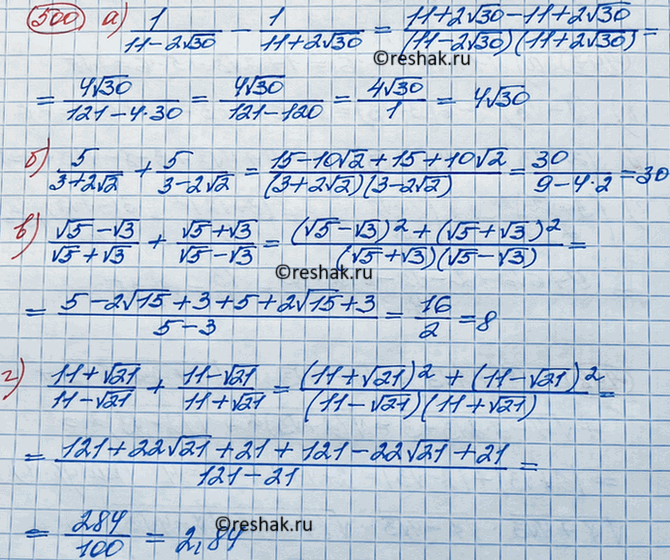 500 а) 1/(11-2√30) - 1/(11+2√30) = (11+2√30-11+2√30)/((11-2√30)(11+2√30)) =
©reshak.ru
= 4√30/(121-4·30) = 4√30/(121-120) = 4√30/1 = 4√30
б) 5/(3+2√2) + 5/(3-2√2) = (15-10√2+15+10√2)/((3+2√2)(3-2√2)) = 30/(9-4·2) = 30
в) (√5-√3)/(√5+√3) + (√5+√3)/(√5-√3) = ((√5-√3)²+(√5+√3)²)/((√5+√3)(√5-√3)) =
©reshak.ru
= (5-2√15+3+5+2√15+3)/(5-3) = 16/2 = 8
г) (11+√21)/(11-√21) + (11-√21)/(11+√21) = ((11+√21)²+(11-√21)²)/((11-√21)(11+√21)) =
= (121+22√21+21+121-22√21+21)/(121-21) =
= 284/100 = 2,84
©reshak.ru